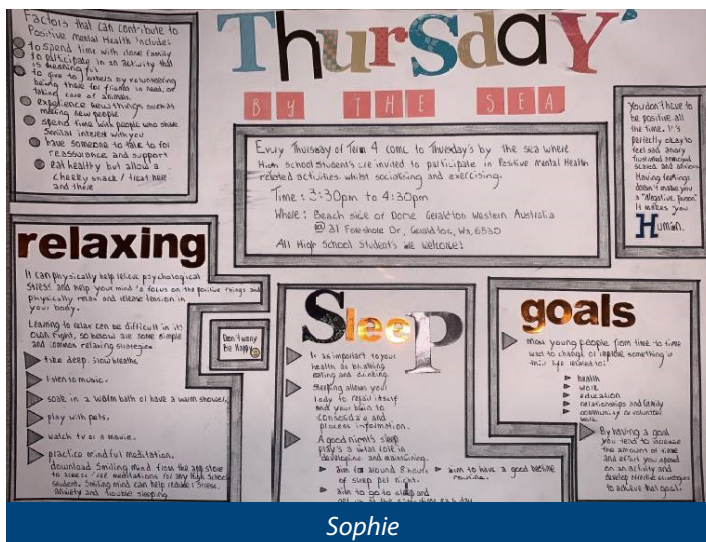 Factors that can contribute to
Positive Mental Health include:
to spend time with close family
to participate in an activity that
is meaningful
to give to others by volunteering
being there for friends in need, or
taking care of animals
experience new things such as
meeting new people
spend time with people who share
Similar interest with you
have someone to talk to for
reassurance and support
eat healthy but allow a
cheeky snack / treat here
and there
Thursday'
BY THE SEA
Every Thursday of Term 4 come to Thursday's by the sea where
High school students are invited to participate in Positive mental Health
related activities whilst socialising and exercising.
Time: 3:30pm to 4:30pm
Where: Beach side of Dome Geraldton Western Australia
@ 31 Foreshore Dr, Geraldton, WA, 6530
All High School Student's are welcome!
You don't have to
be positive all
the time. It's
perfectly okay to
feel sad, angry
frustrated annoyed
scared and anxious
Having feelings
doesn't make you
a "Negative Person"
It makes you
Human.
relaxing
It can physically help relieve psychological
Stress and help your mind to focus on the positive things and
physically relax and release tension in
your body.
Learning to relax can be difficult in its
own right, so below are some simple
and common relaxing strategies
take deep, slow breaths
listen to music.
soak in a warm bath or have a warm shower.
play with pets.
watch tv or a movie.
practice mindful meditation.
download Smiling mind from the app store
to access free meditations for any High School
student. Smiling mind can help reduce Stress,
anxiety and trouble sleeping
Don't worry
Be Happy
Sleep
Is as important to your
health as breathing
eating and drinking.
Sleeping allows your
body to repair itself
and your brain to
consolidate and
process information.
A good night's sleep
play's a vital role in
developing and maintaining.
aim for around 8 hours
of sleep per night.
aim to go to sleep and
aim to have a good bedtime
routine.
goals
most young people from time to time
want to change or improve something in
their life related to:
health
work
education
relationships and family
community or volunteer
work.
By having a goal
you tend to increase
the amount of time
and effort you spend
on an activity and
develop effective strategies
to achieve that goal.
Sophie